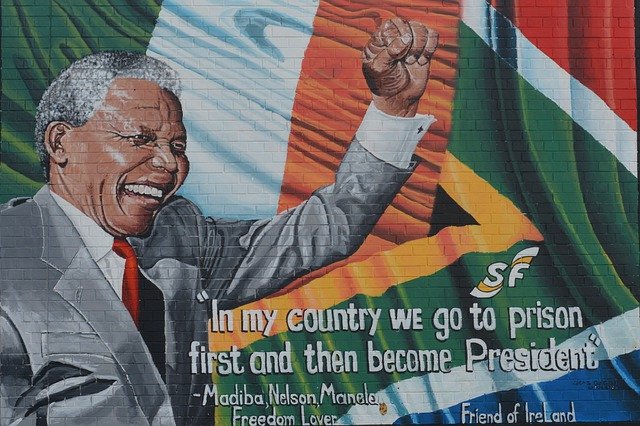 SF
"In my country we go to prison
first and then become President"
-Madiba, Nelson, Manela
Freedom Lover
Friend of IreLand